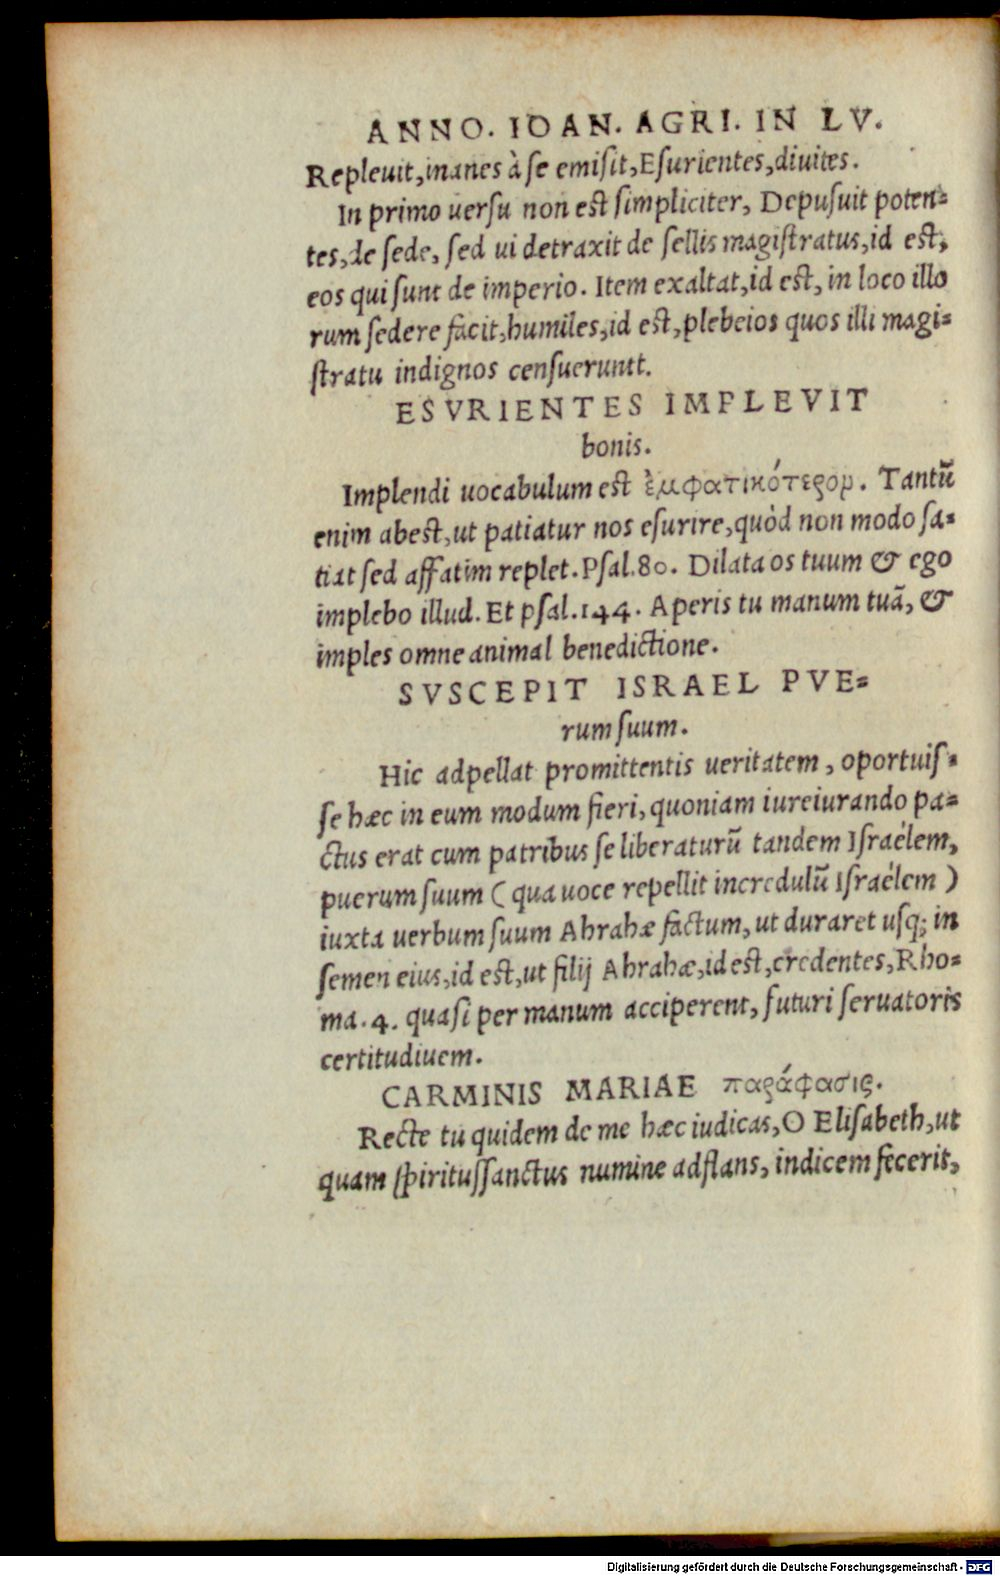 ANNO. IOAN. AGRI. IN LV.
Repleuit, inanes à se emisit, Esurientes, diuites.
In primo uersu non est simpliciter, Depusuit poten=
tes, de sede, sed ui detraxit de sellis magistratus, id est,
eos qui sunt de imperio. Item exaltat, id est, in loco illo
rum sedere facit, humiles, id est, plebeios quos illi magi=
stratu indignos censueruntt.
ESVRIENTES IMPLEVIT
bonis.
Implendi uocabulum est ἐμφατικότερομ. Tantū
enim abest, ut patiatur nos esurire, quòd non modo sa=
tiat sed affatim replet. Psal. 80. Dilata os tuum & ego
implebo illud. Et psal. 144. Aperis tu manum tuā, &
imples omne animal benedictione.
SVSCEPIT ISRAEL PVE=
rum suum.
Hic adpellat promittentis ueritatem, oportuis=
se hæc in eum modum fieri, quoniam iureiurando pa=
ctus erat cum patribus se liberaturū tandem Israélem,
puerum suum ( qua uoce repellit incredulū Israélem )
iuxta uerbum suum Abrahæ factum, ut duraret usq; in
semen eius, id est, ut filij Abrahæ, id est, credentes, Rho=
ma. 4. quasi per manum acciperent, futuri seruatoris
certitudiuem.
CARMINIS MARIAE παράφασις.
Recte tu quidem de me hæc iudicas, O Elisabeth, ut
quam spiritussanctus numine adflans, indicem fecerit,
Digitalisierung gefördert durch die Deutsche Forschungsgemeinschaft - DFG